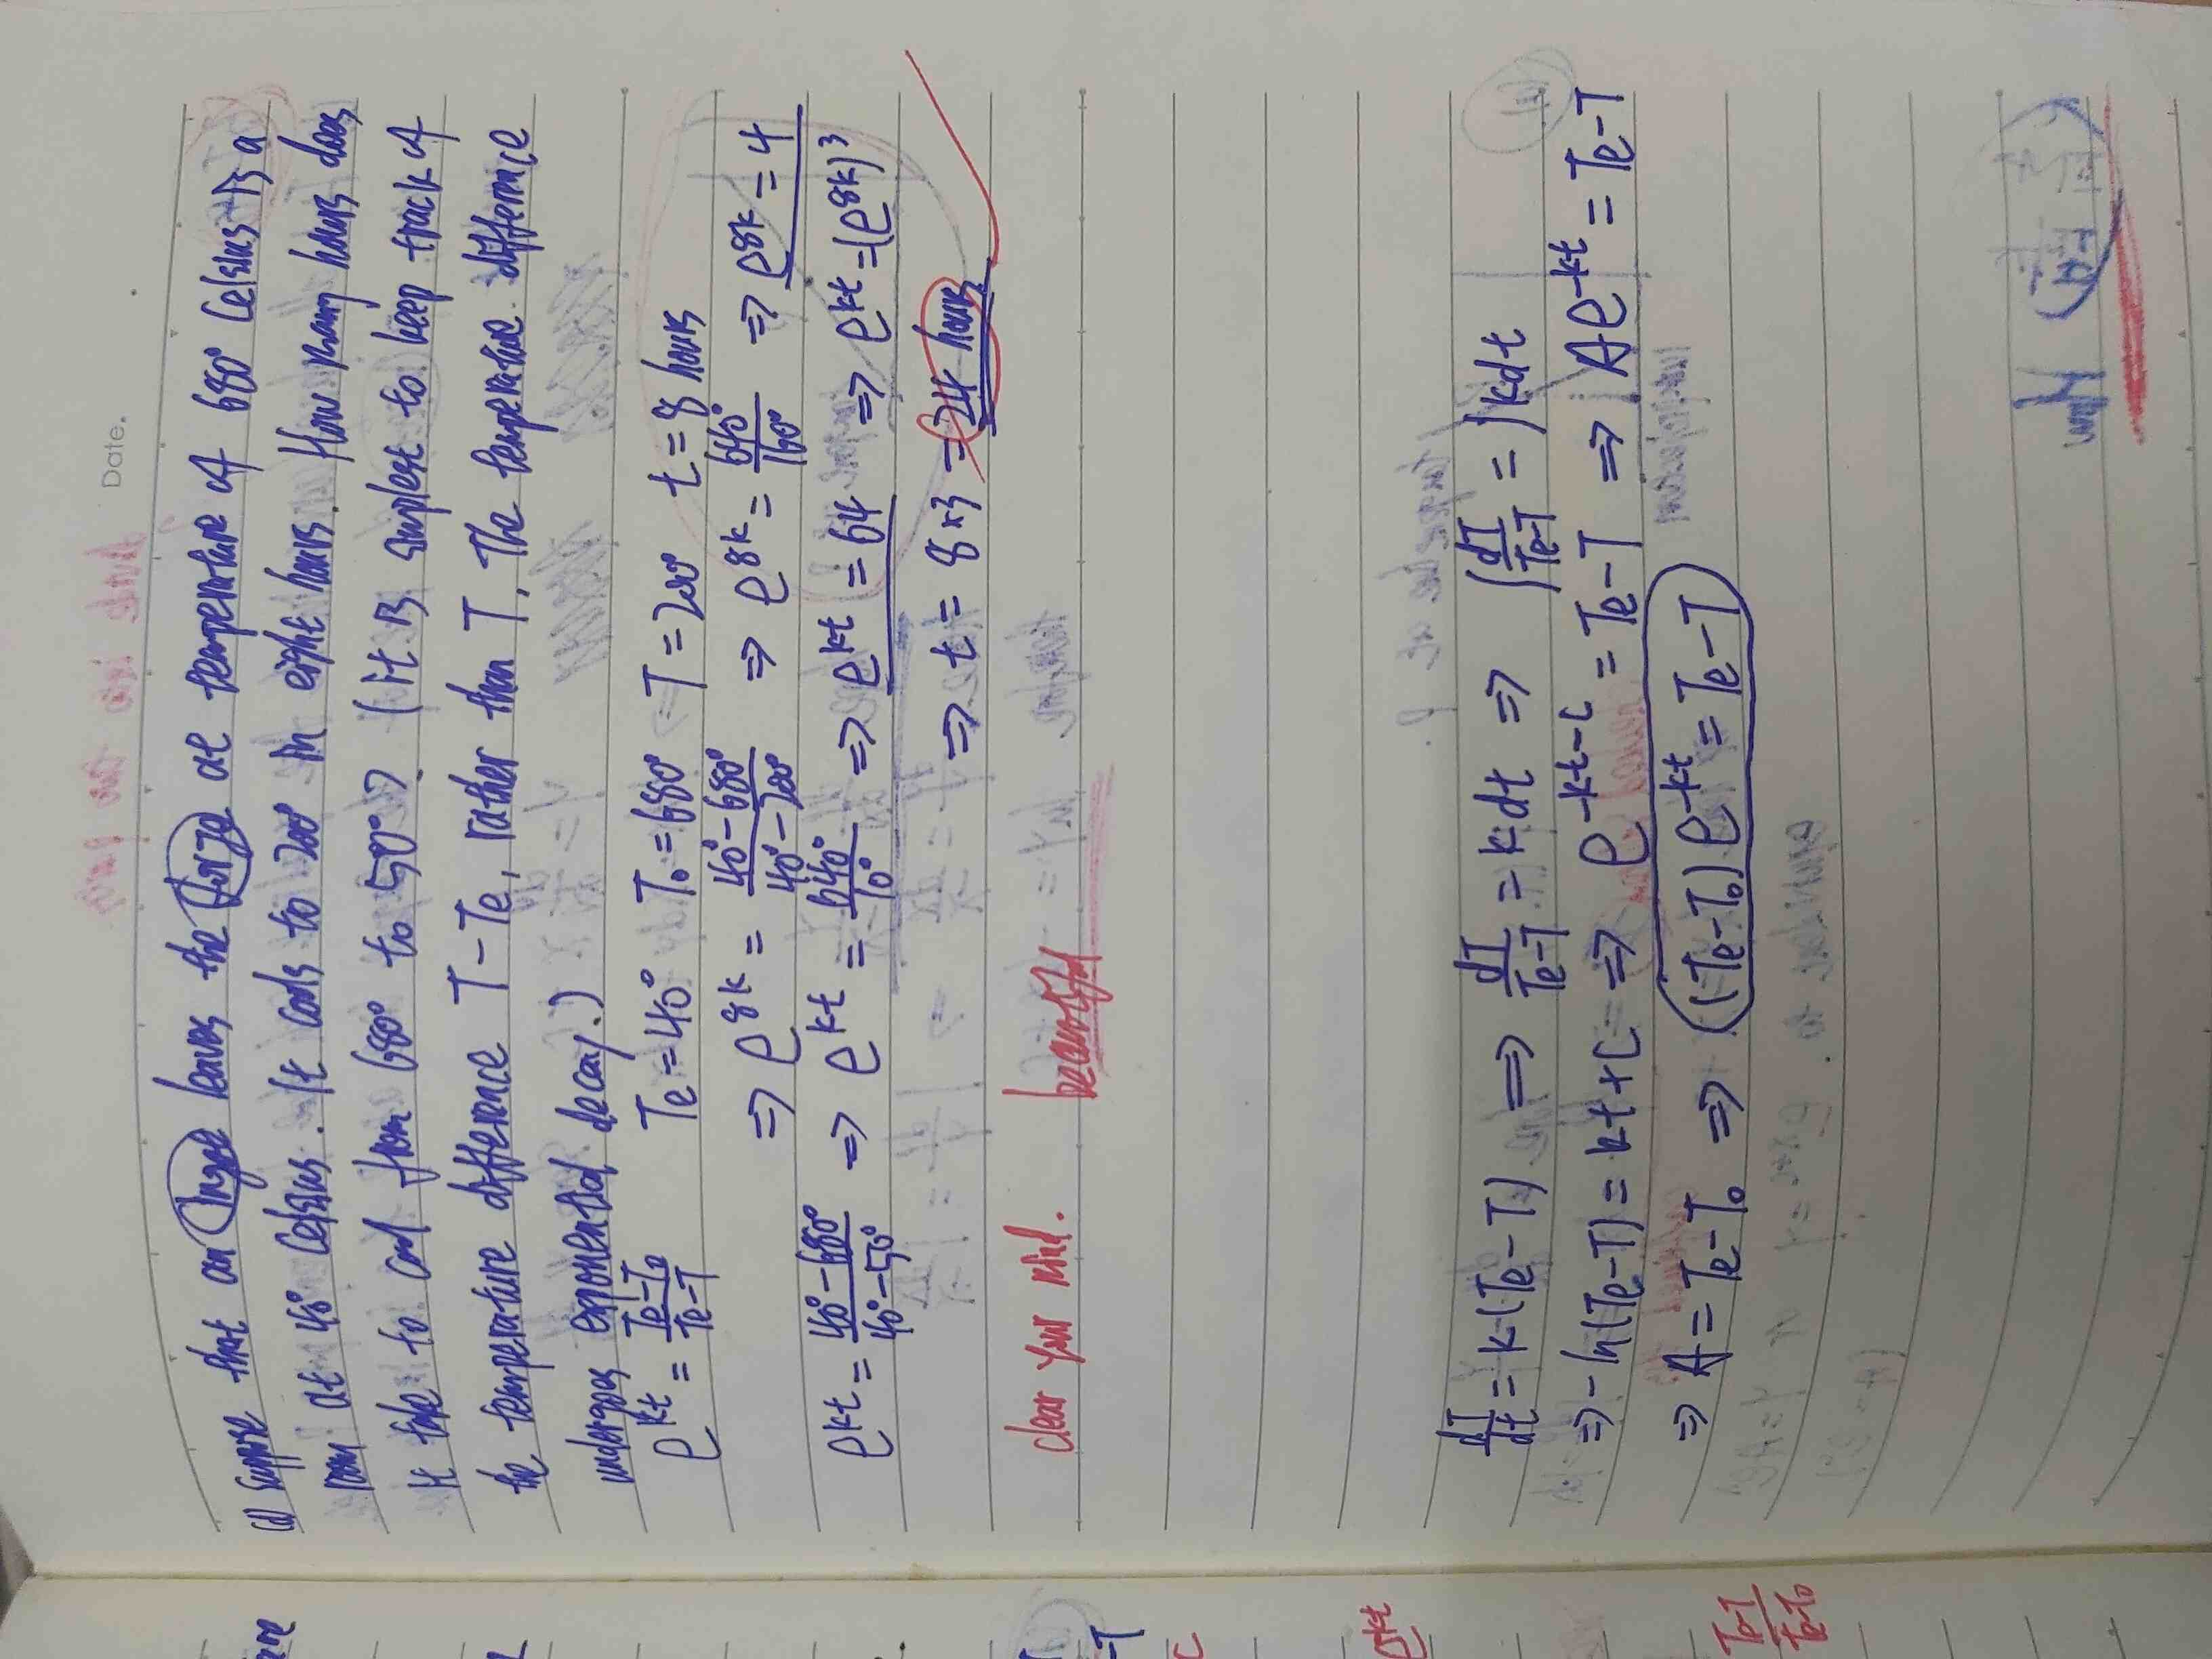 Date.
(d) Suppose that an ingot leaves the forge at temperature of 680° Celsius in a
room at 40° Celsius. It cools to 200° in eight hours. How many hours does
it take to cool from 680° to 50°? (It is simplest to keep track of
the temperature difference T-Te, rather than T. The temperature difference
undergoes exponential decay.)
e^kt = (Te-T₀)/(Te-T) Te=40° T₀=680° T=200° t=8 hours
⇒ e^8k = (40°-680°)/(40°-200°) ⇒ e^8k = 640°/160° ⇒ e^8k = 4
e^kt = (40°-680°)/(40°-50°) ⇒ e^kt = 640°/10° ⇒ e^kt = 64 ⇒ e^kt = (e^8k)^3
⇒ t = 8×3 = 24 hours
clear your mind. beautiful
dT/dt = k(Te-T) ⇒ dT/(Te-T) = kdt ⇒ ∫dT/(Te-T) = ∫kdt
⇒ -ln(Te-T) = kt+C ⇒ e^(-kt-C) = Te-T ⇒ Ae^-kt = Te-T
⇒ A = Te-T₀ ⇒ (Te-T₀)e^-kt = Te-T
-T
C
e^-kt
(Te-T)/(Te-T₀)